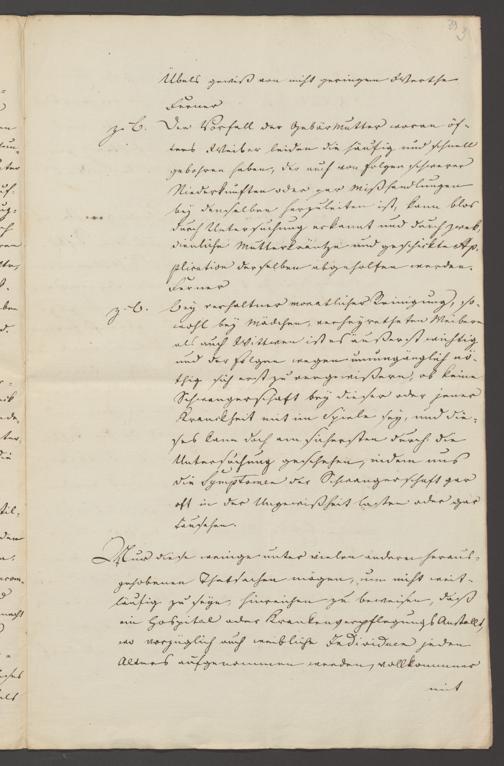 Übels gewiß von nicht geringem Werthe
Ferner
z. B. Der Vorfall der Gebärmutter woran öf-
ters Weiber leiden die häufig und schnell
gebohren haben, der auch von Folgen schwerer
Niederkunften oder gar Mißhandlungen
bey denselben herzuleiten ist, kann blos
durch Untersuchung erkannt und durch zwek-
dienliche Mutterkränze und geschickte Ap-
plication derselben abgeholfen werden.
Ferner
z. B. bey verhaltner monatlicher Reinigung, so-
wohl bey Mädchen, verheyratheten Weibern
als auch Wittwen ist es äußerst wichtig
und der Folgen wegen unumgänglich nö-
thig sich erst zu vergewißern, ob keine
Schwangerschaft bey dieser oder jener
Krankheit mit im Spiele sey, und die-
ses kann doch am sichersten durch die
Untersuchung geschehen, indem uns
die Symptomen der Schwangerschaft gar
oft in der Ungewißheit lassen oder gar
täuschen.
Nur diese wenige unter vielen andern heraus-
gehobenen Thatsachen mögen, um nicht weit-
läufig zu seyn, hinreichen zu beweisen, daß
ein Hospital oder Krankenverpflegungs Anstalt,
wo vorzüglich auch weibliche Individuen jeden
Alters aufgenommen werden, vollkommner
mit